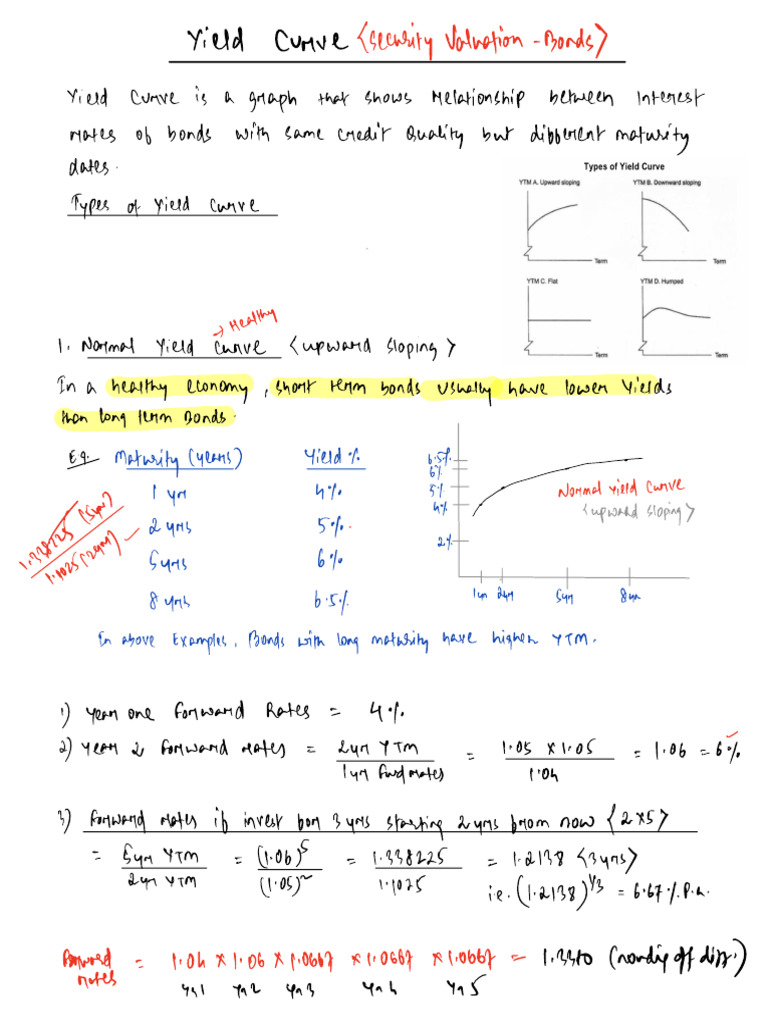 Yield Curve <Security Valuation - Bonds>
Yield Curve is a graph that shows relationship between interest
rates of bonds with same credit quality but different maturity
dates.
Types of Yield Curve
Types of Yield Curve
YTM A. Upward sloping
YTM B. Downward sloping
Term
Term
YTM C. Flat
YTM D. Humped
Term
Term
→ Healthy
1. Normal Yield Curve <upward sloping>
In a healthy economy, short term bonds usually have lower yields
than long term Bonds.
Eg. Maturity (years) Yield %
1 yr 4%
2 yrs 5%
5 yrs 6%
8 yrs 6.5%
1.338225 (5yr)
1.1025 (2yr)
6.5%
6%
5%
4%
2%
Normal Yield Curve
<upward sloping>
1yr 2yr 5yr 8yr
In above Examples, Bonds with long maturity have higher YTM.
1) Year one forward Rates = 4%
2) Year 2 forward rates = 2yr YTM / 1yr Fwd rates = 1.05 x 1.05 / 1.04 = 1.06 = 6%
3) Forward rates if invest for 3 yrs starting 2 yrs from now <2x5>
= 5yr YTM / 2yr YTM = (1.06)^5 / (1.05)^2 = 1.338225 / 1.1025 = 1.2138 <3yrs>
i.e. (1.2138)^1/3 = 6.67% P.a.
Forward rates = 1.04 x 1.06 x 1.0667 x 1.0667 x 1.0667 = 1.3380
Yr1 Yr2 Yr3 Yr4 Yr5